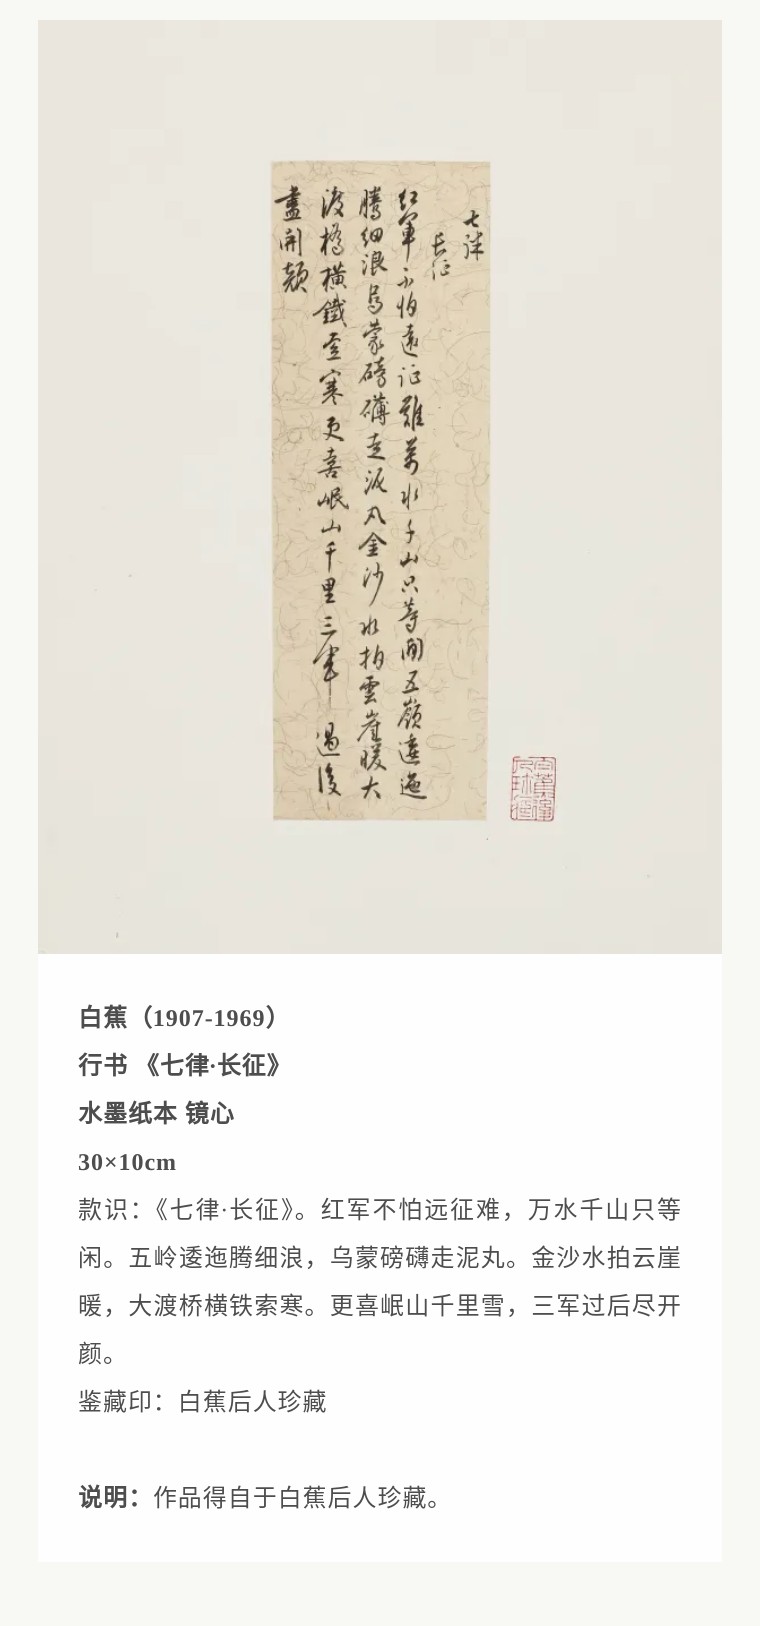 七律
長征
紅軍不怕遠征難萬水千山只等閒五嶺逶迤
騰細浪烏蒙磅礴走泥丸金沙水拍雲崖暖大
渡橋橫鐵索寒更喜岷山千里三軍過後
盡開顏
白蕉（1907-1969）
行书 《七律·长征》
水墨纸本 镜心
30×10cm
款识：《七律·长征》。红军不怕远征难，万水千山只等
闲。五岭逶迤腾细浪，乌蒙磅礴走泥丸。金沙水拍云崖
暖，大渡桥横铁索寒。更喜岷山千里雪，三军过后尽开
颜。
鉴藏印：白蕉后人珍藏
说明：作品得自于白蕉后人珍藏。